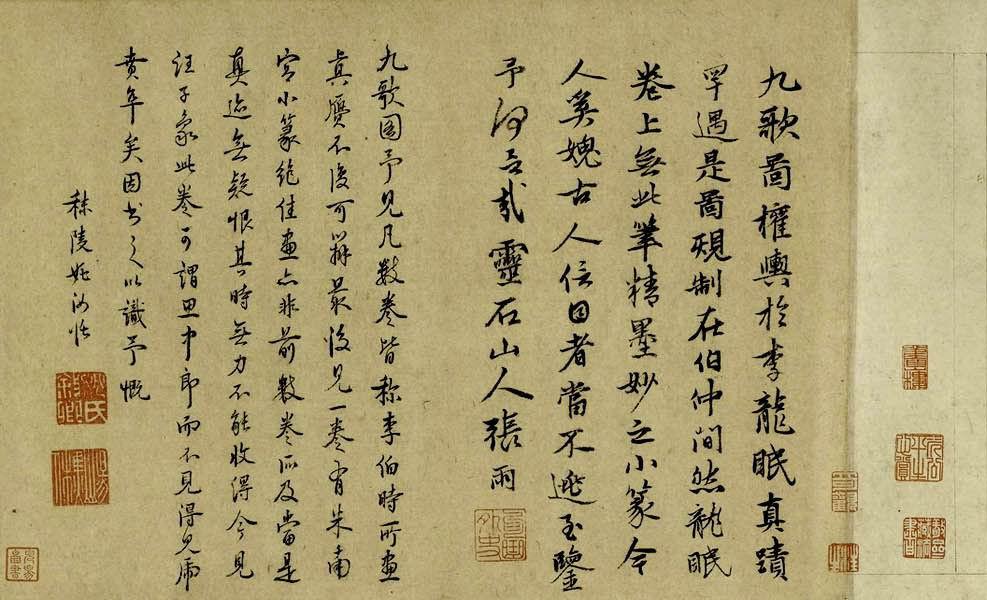 九歌圖權輿於李龍眠真蹟
罕遇是圖規制在伯仲間然龍眠
卷上無此筆精墨妙之小篆令
人奚媿古人信目者當不逃至鑒
予何言哉靈石山人張雨
九歌圖予見凡數卷皆稱李伯時所畫
真贗不復可辨最後見一卷有朱南
宮小篆絶佳畫亦非前數卷所及當是
真迹無疑恨其時無力不能收得今見
汪子象此卷可謂思中郎而不見得見虎
賁耳矣因書之以識予慨
秣陵姚汝循